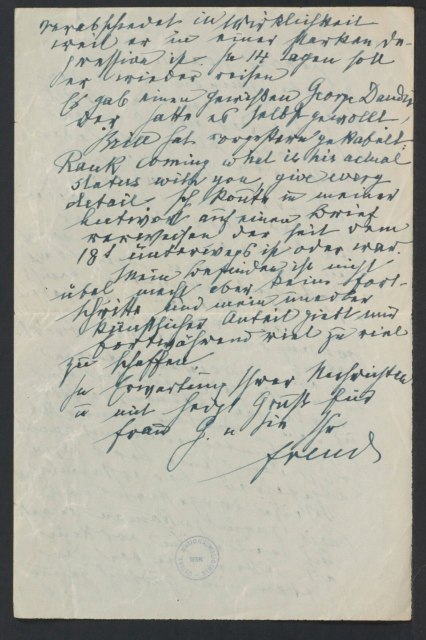 verabschiedet in Wirklichkeit
weil er in einer starken De-
pression ist. In 14 Tagen soll
er wieder reisen
Es gab einen gewißen George Dandin
der hatte es selbst gewollt,
Brill hat vorgestern gekabelt:
Rank coming what is his actual
status with you, give every
detail. Ich konnte in meiner
Antwort auf einen Brief
verweisen der seit dem
18t unterwegs ist oder war.
Mein Befinden ist nicht
übel macht aber keine Fort-
schritte und mein
künstlicher Anteil gibt mir
fortwährend viel zu viel
zu schaffen
In Erwartung Ihrer Nachrichten
u mit herzl Gruß für
Frau G. u Sie Ihr
Freud